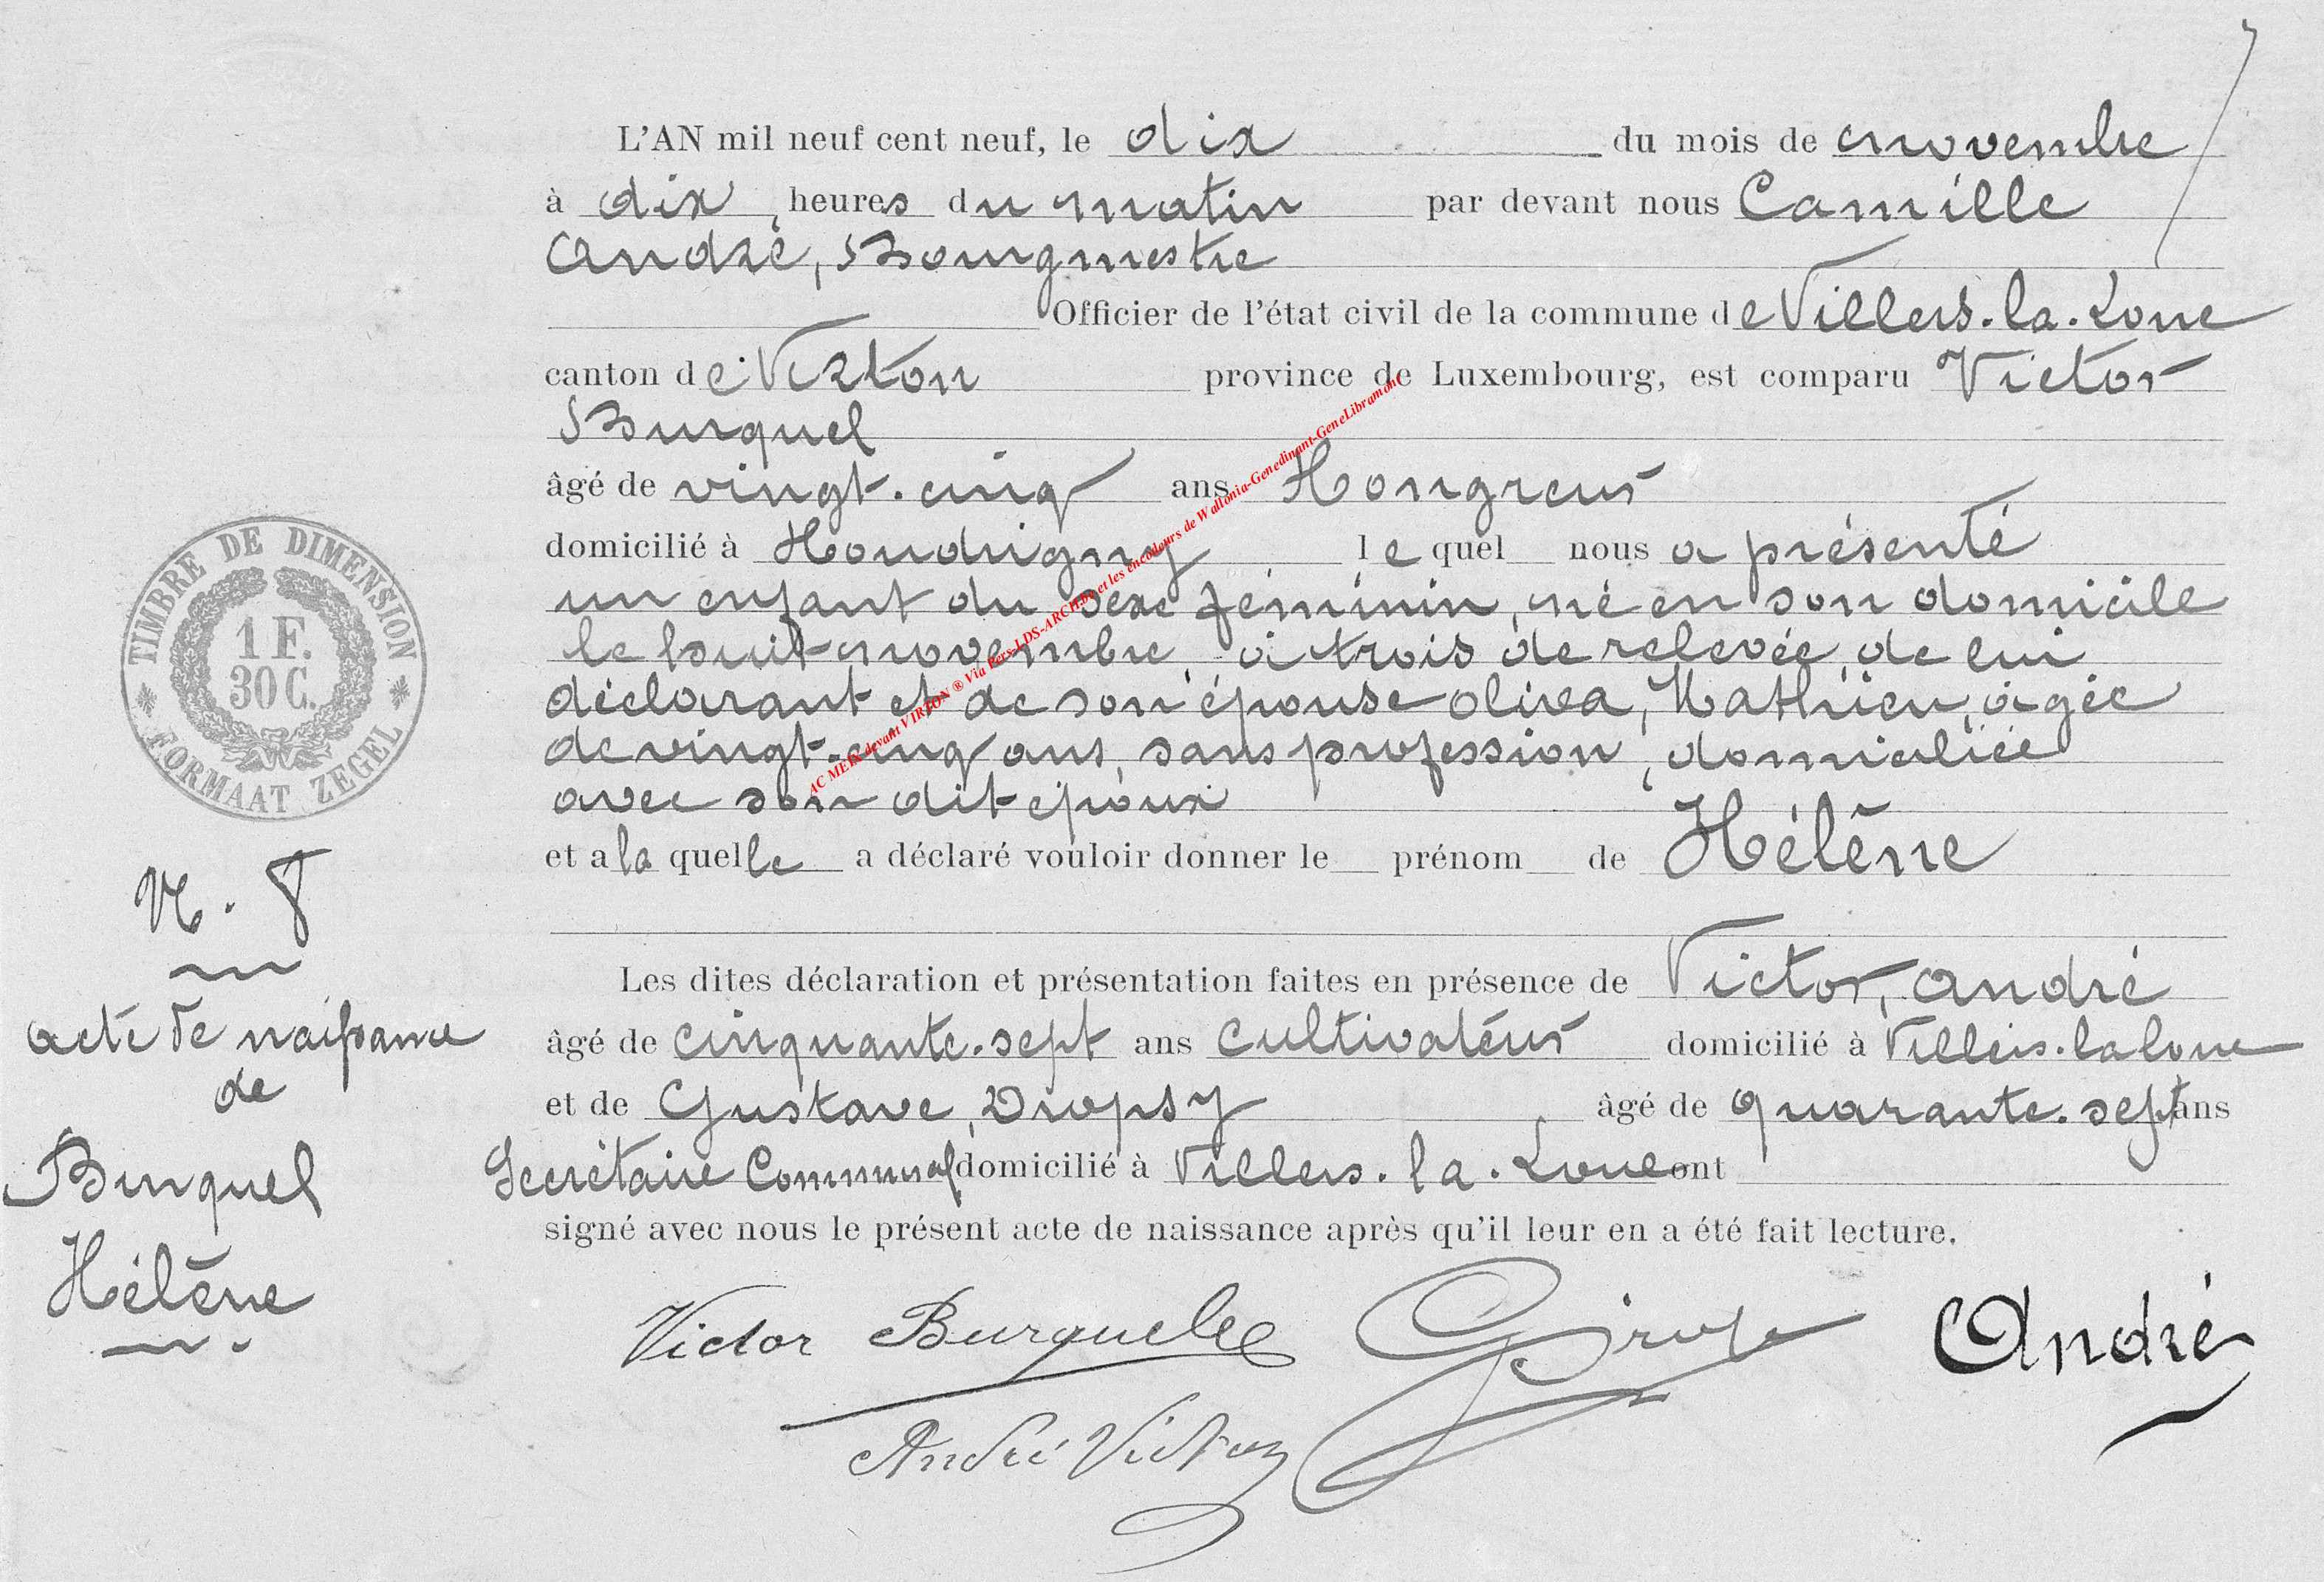 L'AN mil neuf cent neuf, le dix du mois de novembre
à dix, heures du matin par devant nous Camille
André, Bourgmestre
Officier de l'état civil de la commune de Villers-la-Loue
canton de Virton province de Luxembourg, est comparu Victor
Burquel
âgé de vingt-cinq ans Hongreur
domicilié à Houdrigny lequel nous a présenté
un enfant du sexe féminin, né en son domicile
le huit novembre, à trois de relevée, de lui
déclarant et de son épouse Oliva, Mathieu, âgée
de vingt-cinq ans, sans profession, domiciliée
avec son dit époux
et a laquelle a déclaré vouloir donner le prénom de Hélène
Les dites déclaration et présentation faites en présence de Victor, André
âgé de cinquante-sept ans cultivateur domicilié à Villers-la loue
et de Gustave, Dropsy âgé de quarante-sept ans
Secrétaire Communal domicilié à Villers-la-Loue ont
signé avec nous le présent acte de naissance après qu'il leur en a été fait lecture.
Victor Burquel
André
André Victor
TIMBRE DE DIMENSION
1 F.
30 C.
FORMAAT ZEGEL
N. 8
acte de naissance
de
Burquel
Hélène
AC MEIX devant VIRTON ® Via Pers-LDS-ARCH.be et les encodeurs de Wallonia-Genedinant-GeneLibramont